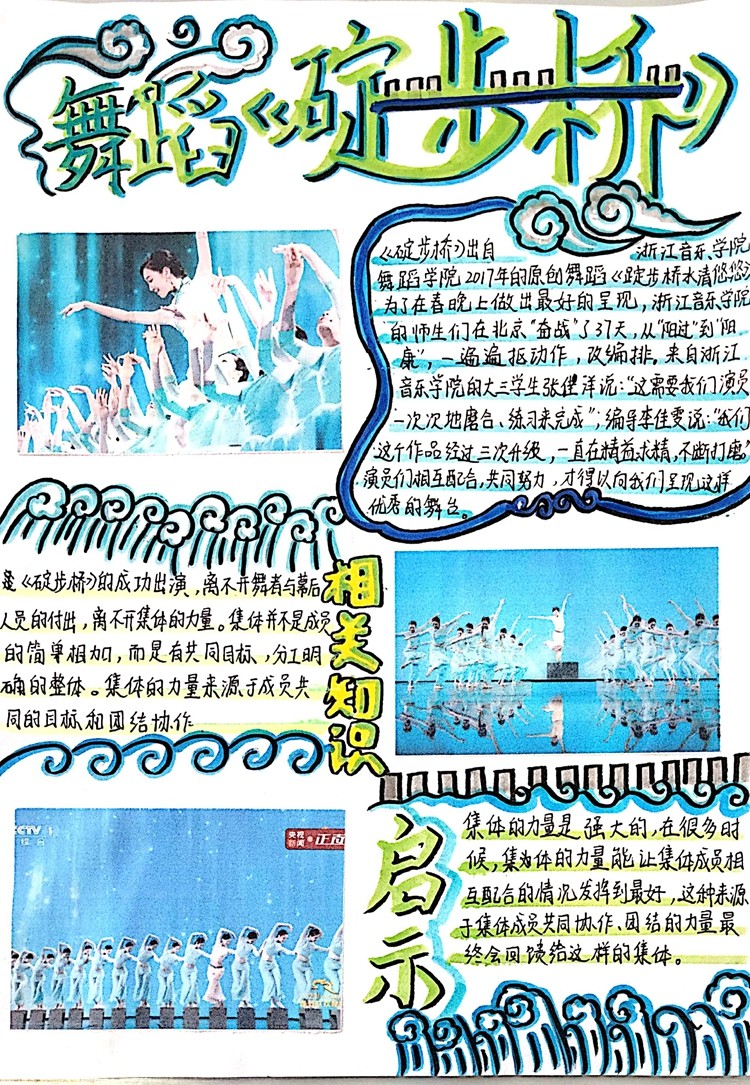 舞蹈《碇步桥》
《碇步桥》出自 浙江音乐学院
舞蹈学院2017年的原创舞蹈《碇步桥水清悠悠》
为了在春晚上做出最好的呈现，浙江音乐学院
的师生们在北京“奋战”了37天，从“阳过”到“阳
康”，一遍遍抠动作，改编排。来自浙江
音乐学院的大三学生张健洋说：“这需要我们演员
一次次地磨合、练习来完成”；编导李佳雯说：“我们
这个作品经过三次升级，一直在精益求精，不断打磨。”
演员们相互配合，共同努力，才得以向我们呈现这样
优秀的舞台。
《碇步桥》的成功出演，离不开舞者与幕后
人员的付出，离不开集体的力量。集体并不是成员
的简单相加，而是有共同目标，分工明
确的整体。集体的力量来源于成员共
同的目标和团结协作
相关知识
CCTV 1
综合
央视
新闻
正直
启示
集体的力量是强大的，在很多时
候，集为体的力量能让集体成员相
互配合的情况发挥到最好，这种来源
于集体成员共同协作、团结的力量最
终会回馈给这样的集体。